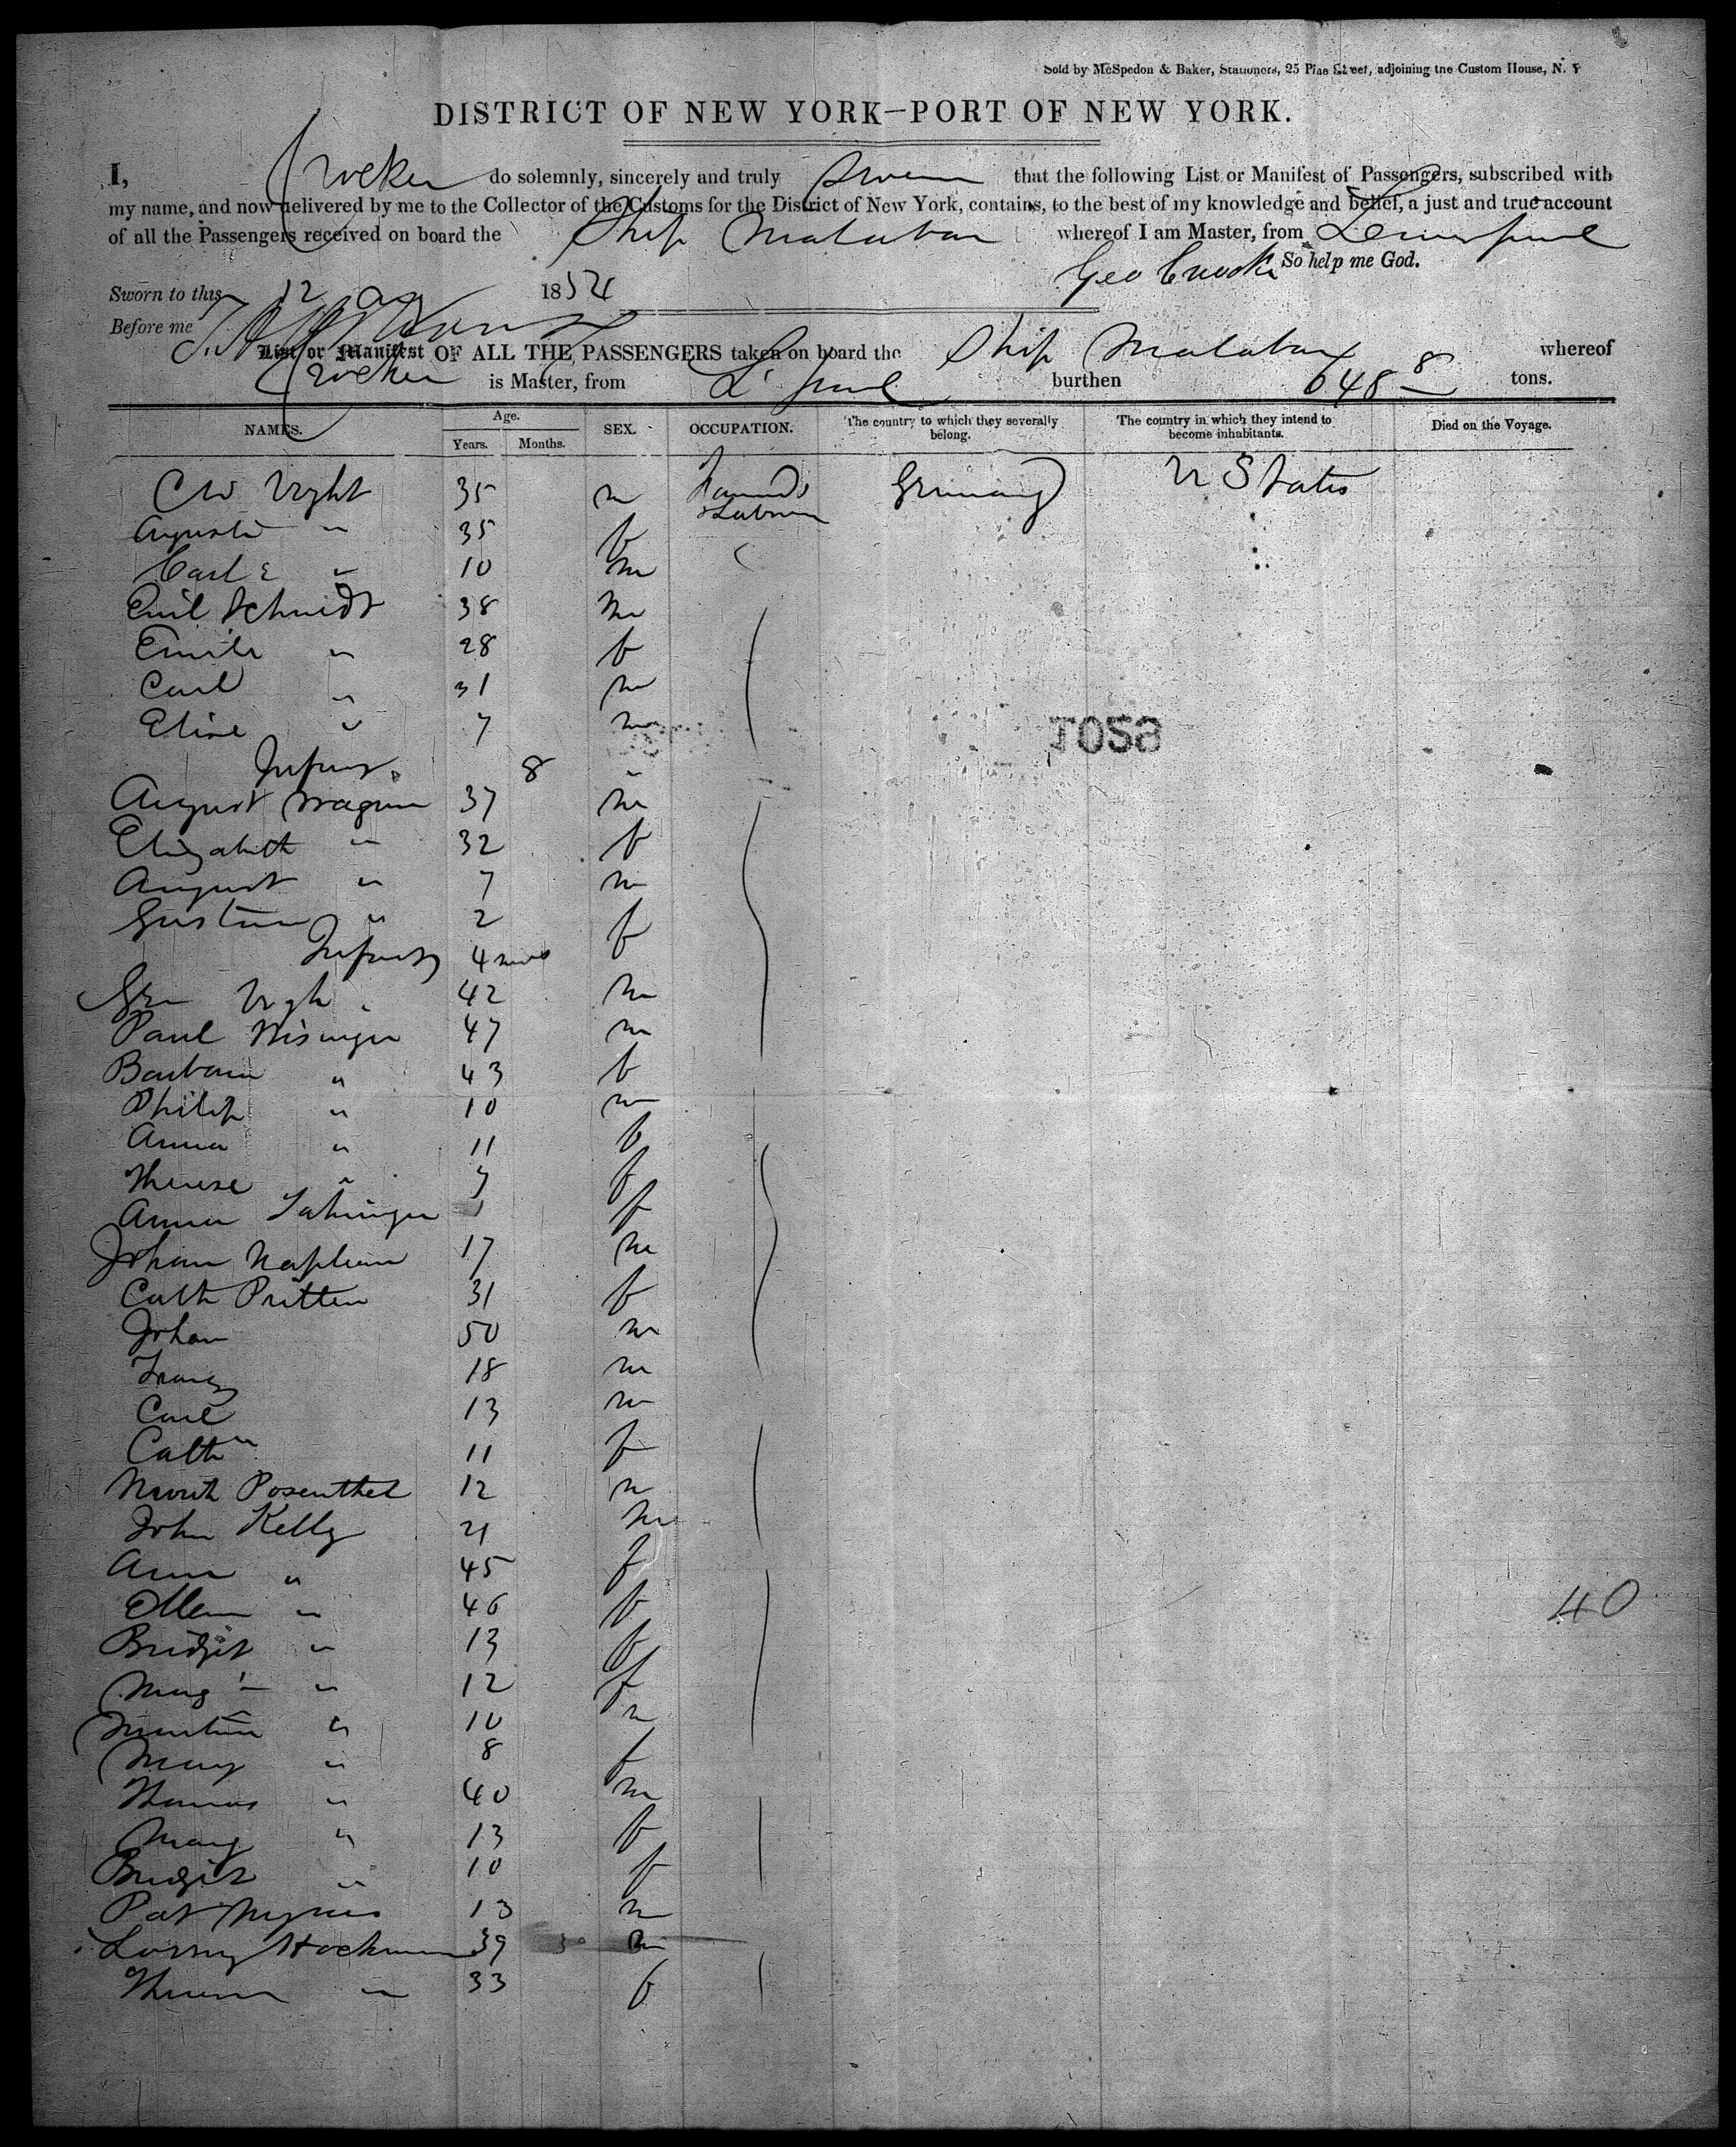 Sold by McSpedon & Baker, Stationers, 25 Pine Street, adjoining the Custom House, N. Y
DISTRICT OF NEW YORK—PORT OF NEW YORK.
I, Crocker do solemnly, sincerely and truly Swear that the following List or Manifest of Passengers, subscribed with
my name, and now delivered by me to the Collector of the Customs for the District of New York, contains, to the best of my knowledge and belief, a just and true account
of all the Passengers received on board the Ship Malabar whereof I am Master, from Liverpool
Geo Crocker So help me God.
Sworn to this 12 Aug 1854
Before me
List or Manifest OF ALL THE PASSENGERS taken on board the Ship Malabar whereof
Crocker is Master, from L'pool burthen 648 8 tons.
NAMES. Age. Years. Months. SEX. OCCUPATION. The country to which they severally belong. The country in which they intend to become inhabitants. Died on the Voyage.
C W Voght 35 m Farmers & Labourers Germany U States
Auguste " 35 f
Carl E " 10 m
Emil Schmidt 38 m
Emile " 28 f
Carl " 31 m
Elise " 7 m
Infant 8 "
TOSS
August Wagner 37 m
Elizabeth " 32 f
August " 7 m
Gustav " 2
Infant 4 mos f
42 m
Paul 47 m
Barbara " 43 f
Philip " 10 m
Anna " 11 f
Therese " 7 f
Anna f
Johann 17 m
Cath Pritten 31 f
Johan 50 m
Franz 18 m
Carl 13 m
Cath 11 f
Posenthel 12 m
John Kelly 21 m
Ann " 45 f
Ellen " 46 f
Bridget " 13 f
40
Marg't " 12 f
Martin " 10 m
Mary " 8 f
Thomas " 40 m
Mary " 13 f
Bridget " 10 f
Pat 13 m
39 m
" 33 f